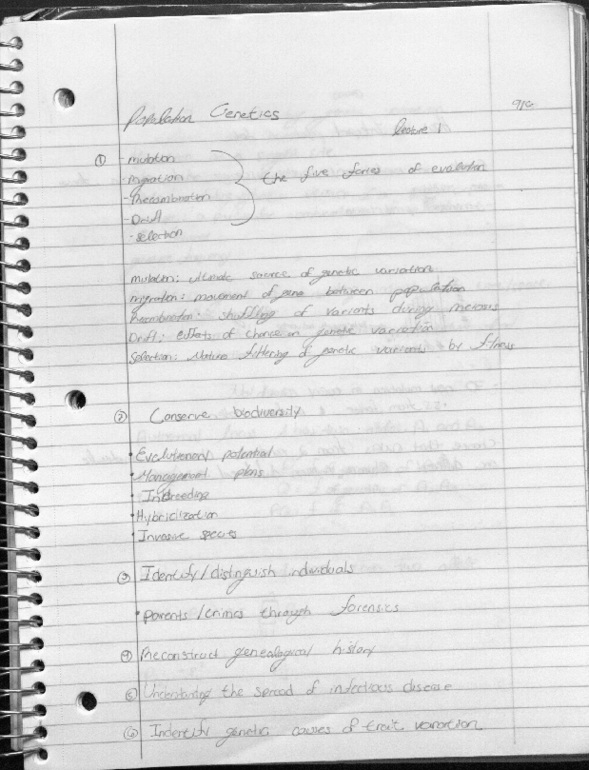 9/6
Population Genetics
lecture 1
① -mutation
-migration
-Recombination } the five forces of evolution
-Drift
-selection
mutation: ultimate source of genetic variation
migration: movement of gene between population
Recombination: shuffling of variants during meiosis
Drift: effects of chance in genetic variation
Selection: Nature filtering of genetic variants by fitness
② Conserve biodiversity
• Evolutionary potential
• Management plans
• Inbreeding
• Hybridization
• Invasive species
③ Identify/distinguish individuals
• parents/crimes through forensics
④ Reconstruct genealogical history
⑤ Understanding the spread of infectious disease
⑥ Indentify genetic causes of trait variation